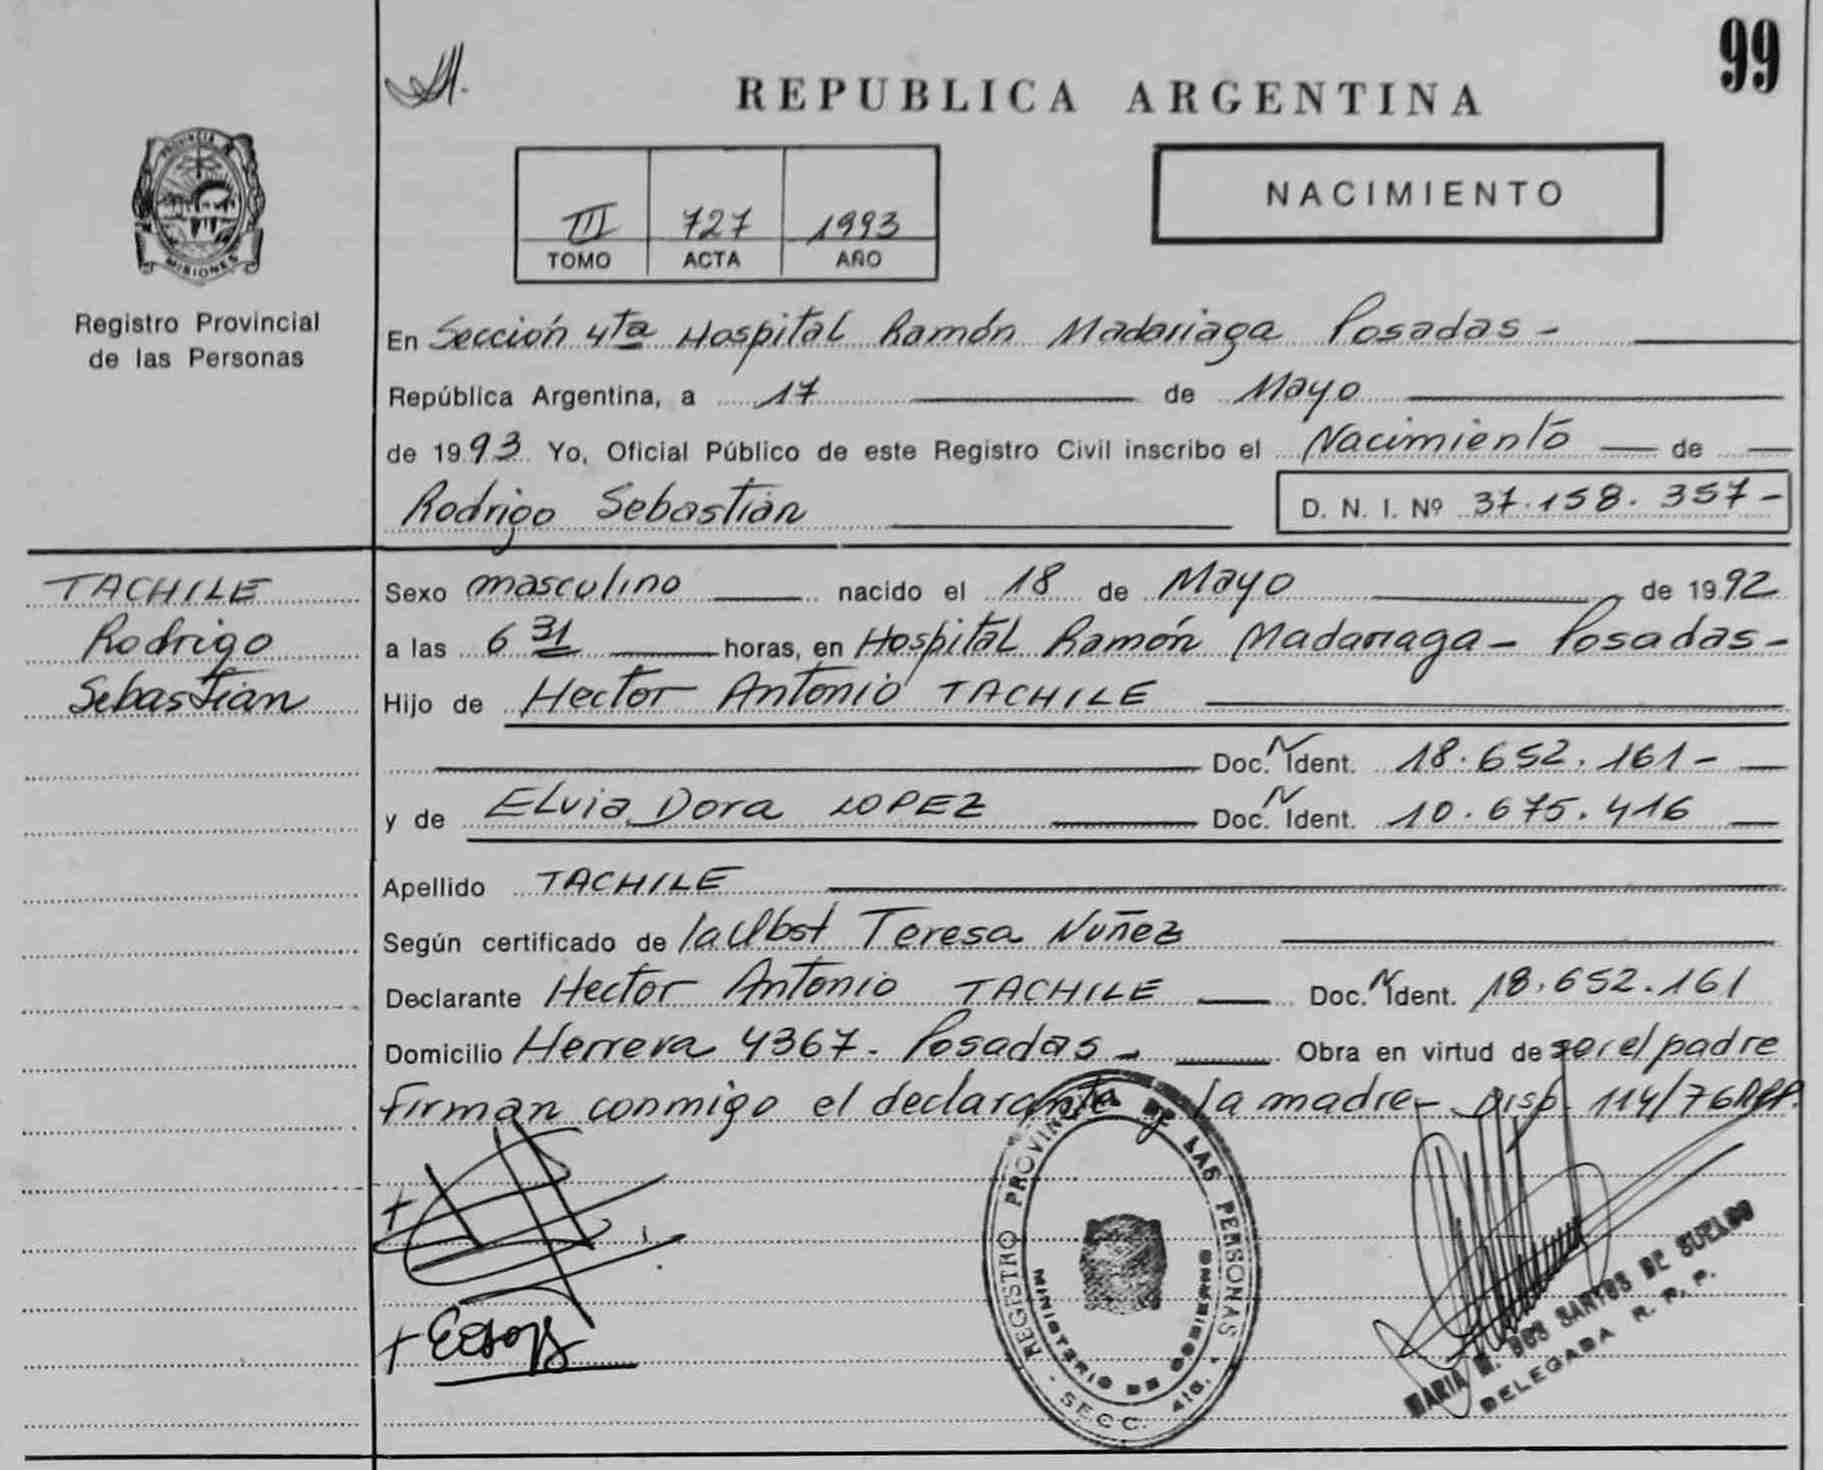 99
REPUBLICA ARGENTINA
PROVINCIA DE
MISIONES
Registro Provincial
de las Personas
NACIMIENTO
III 727 1993
TOMO ACTA AÑO
En Sección 4ta Hospital Ramón Madariaga Posadas -
República Argentina, a 17 de Mayo
de 1993 Yo, Oficial Público de este Registro Civil inscribo el Nacimiento de
Rodrigo Sebastián D. N. I. Nº 37.158.357-
TACHILE
Rodrigo
Sebastian
Sexo masculino nacido el 18 de Mayo de 1992
a las 6 31 horas, en Hospital Ramón Madariaga - Posadas -
Hijo de Hector Antonio TACHILE
Doc. N Ident. 18.652.161-
y de Elvia Dora LOPEZ Doc. N Ident. 10.675.416
Apellido TACHILE
Según certificado de la Obst Teresa Nuñez
Declarante Hector Antonio TACHILE Doc. N Ident. 18.652.161
Domicilio Herrera 4367 - Posadas - Obra en virtud de ser el padre
Firman conmigo el declarante y la madre - Disp. 114/76
REGISTRO PROVINCIAL DE LAS PERSONAS
MINISTERIO DE GOBIERNO
SECC. 4ta.
MARIA M. DOS SANTOS DE SUELDO
DELEGADA R. P. P.